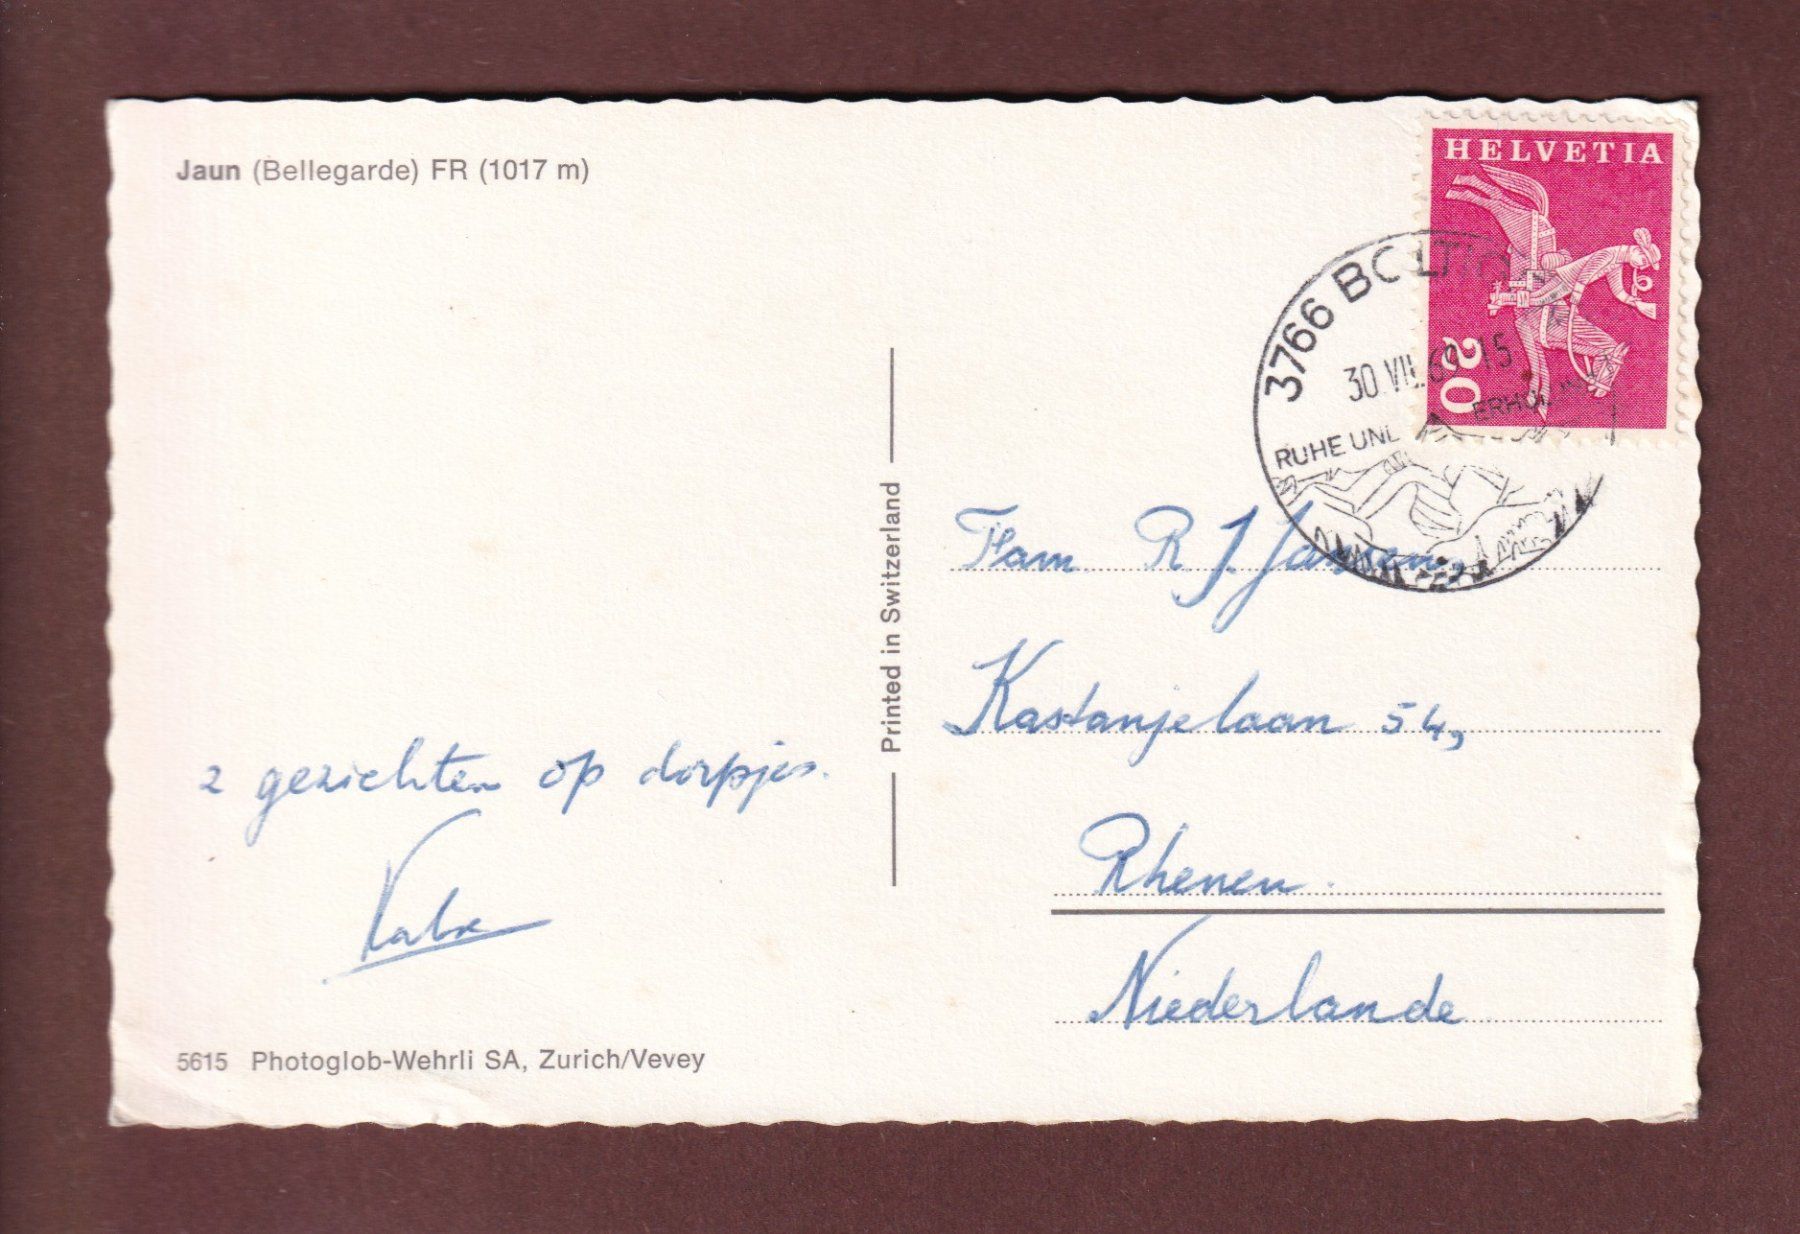 Jaun (Bellegarde) FR (1017 m)
HELVETIA
20
3766 BOLTIG
30.VII.69-15
RUHE UND ERHOLUNG
Printed in Switzerland
Fam. R J. Jansen,
Kastanjelaan 54,
Rhenen.
Niederlande
2 gezichten op dorpjes.
5615 Photoglob-Wehrli SA, Zurich/Vevey